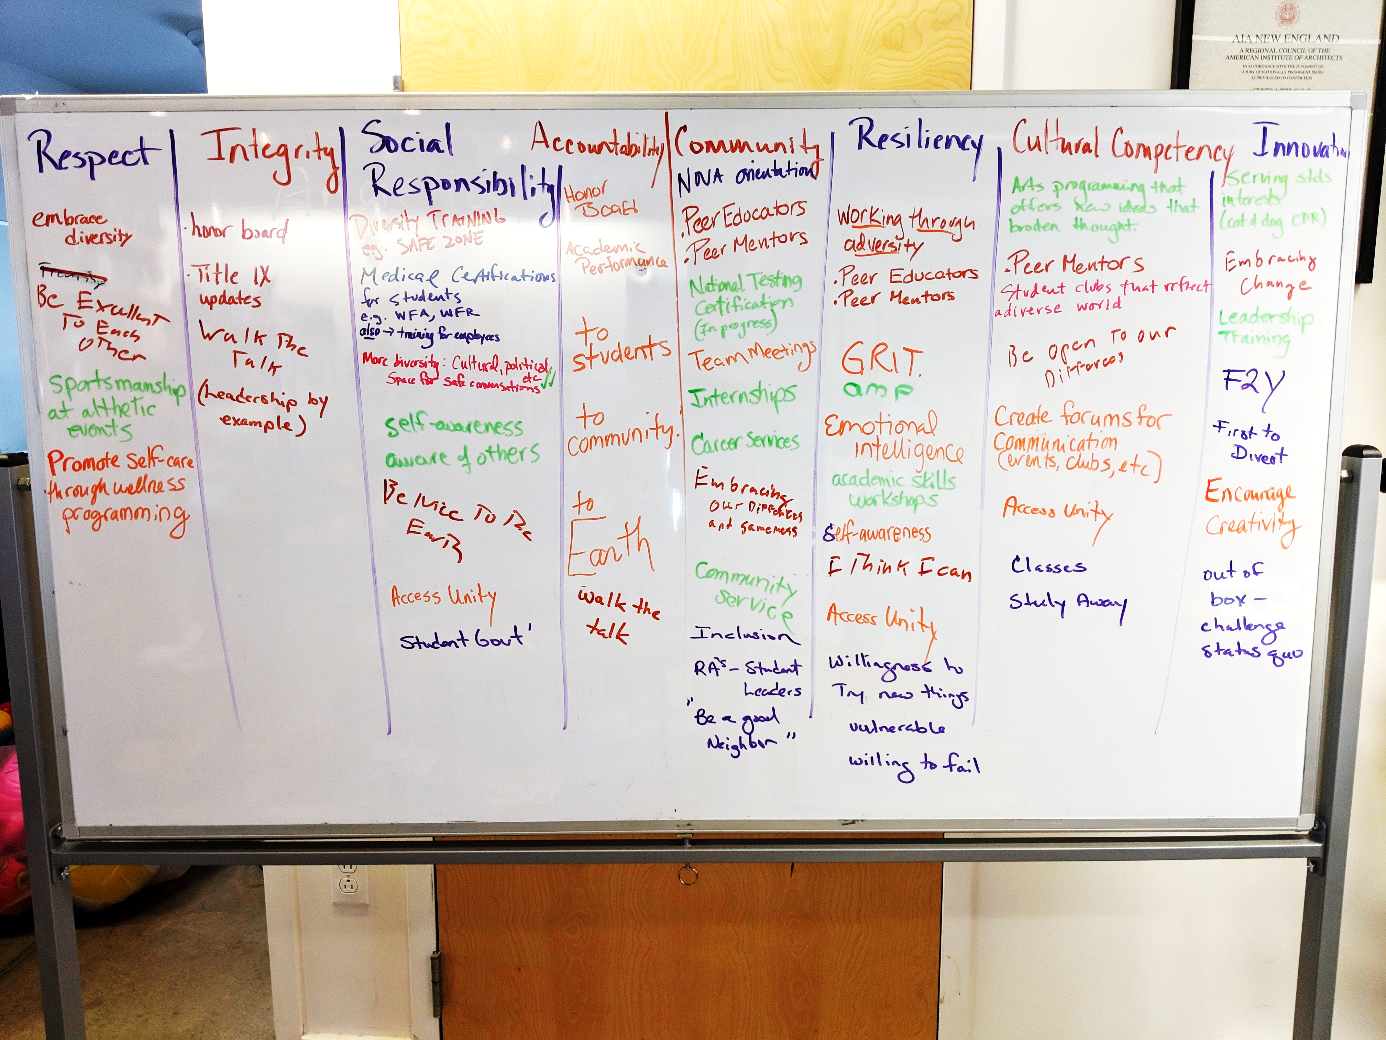 AIA NEW ENGLAND
A REGIONAL COUNCIL OF THE
AMERICAN INSTITUTE OF ARCHITECTS
Respect
embrace
diversity
Be Excellent
To Each
Other
Sportsmanship
at althetic
events
Promote Self-care
through wellness
programming
Integrity
·honor board
·Title IX
updates
Walk The
Talk
(Leadership by
example)
Social
Responsibility
Diversity TRAINING
eg. SAFE ZONE
Medical Certifications
for students
e.g. WFA, WFR
also → training for employees
More diversity: Cultural, political, etc
Space for safe conversations
self-awareness
aware of others
Be Nice To The
Earth
Access Unity
Student Gov't
Accountability
Honor
Board
Academic
Performance
to
students
to
community
to
Earth
Walk the
talk
Community
NNA orientation
·Peer Educators
·Peer Mentors
National Testing
Certification
(In progress)
Team Meetings
Internships
Career Services
Embracing
our Differences
and sameness
Community
Service
Inclusion
RA's - Student
Leaders
"Be a good
Neighbor"
Resiliency
Working through
adversity
·Peer Educators
·Peer Mentors
GRIT.
amp
Emotional
intelligence
academic skills
workshops
Self-awareness
I Think I can
Access Unity
Willingness to
Try new things
vulnerable
willing to fail
Cultural Competency
Arts programming that
offers new ideas that
broden thought.
·Peer Mentors
Student clubs that reflect
a diverse world
Be Open To our
Differences
Create forums for
Communication
(events, clubs, etc)
Access Unity
Classes
Study Away
Innovation
Serving stds
interests
(cat & dog CPR)
Embracing
Change
Leadership
Training
F2Y
First to
Divest
Encourage
Creativity
out of
box -
challenge
status quo